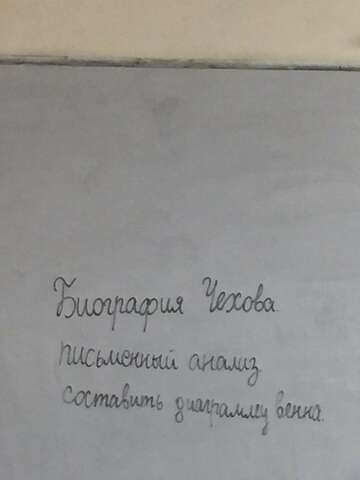 Биография Чехова.
письменный анализ
составить диаграмму венна.